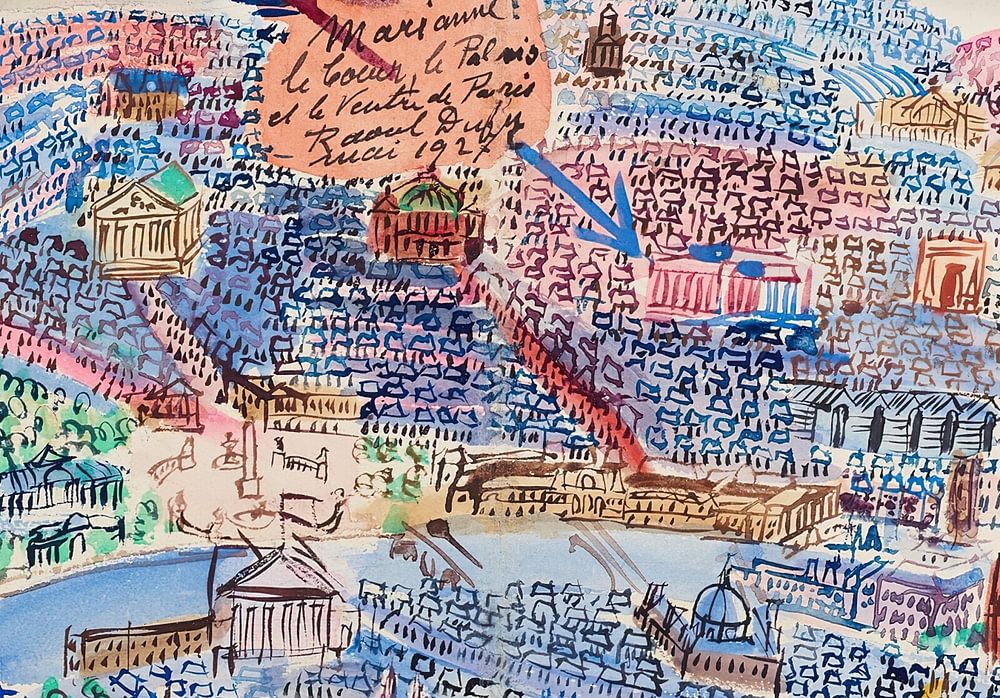 Marianne!
le Coeur, le Palais
et le Ventre de Paris
Raoul Dufy
mai 1927